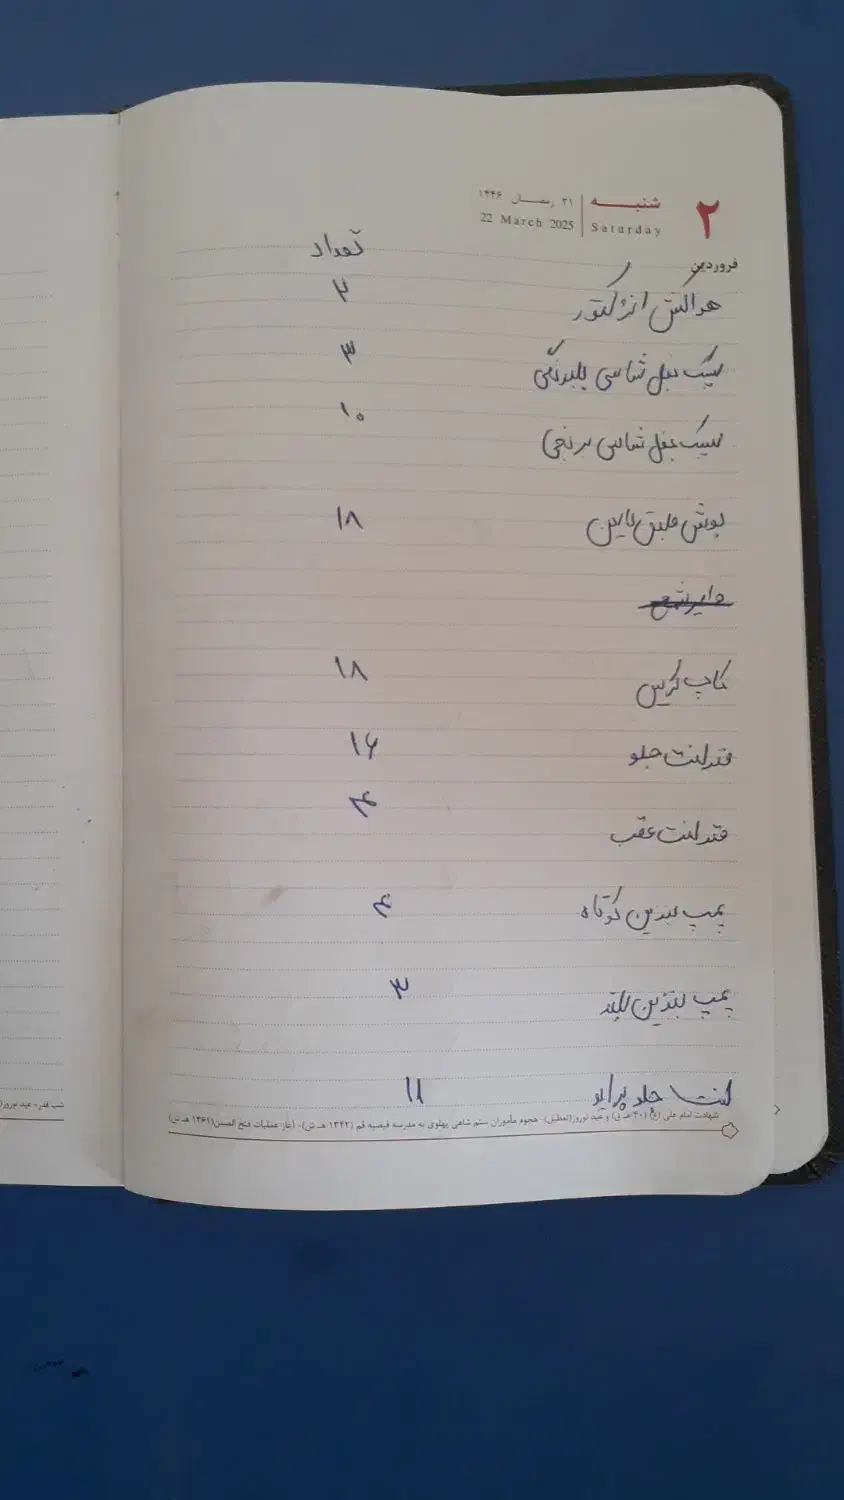 ۲
شنبه
۲۱ رمضان ۱۴۴۶
Saturday
22 March 2025
فروردین
تعداد
هواکش انژکتور ۲
سیبک بغل شاسی بلبرینگی ۳
سیبک بغل شاسی برنجی ۱۰
بوش طبق پایین ۱۸
وایر شمع
کاپ گریس ۱۸
فنر لنت جلو ۱۶
فنر لنت عقب ۴
پمپ بنزین کوتاه ۴
پمپ بنزین بلند ۳
لنت جلو پراید ۱۱
شهادت امام علی (ع) (۴۰ هـ ق) و عید نوروز(تعطیل)- هجوم مأموران ستم شاهی پهلوی به مدرسه فیضیه قم (۱۳۴۲ هـ ش)- آغاز عملیات فتح المبین(۱۳۶۱ هـ ش)
شب قدر- عید نوروز